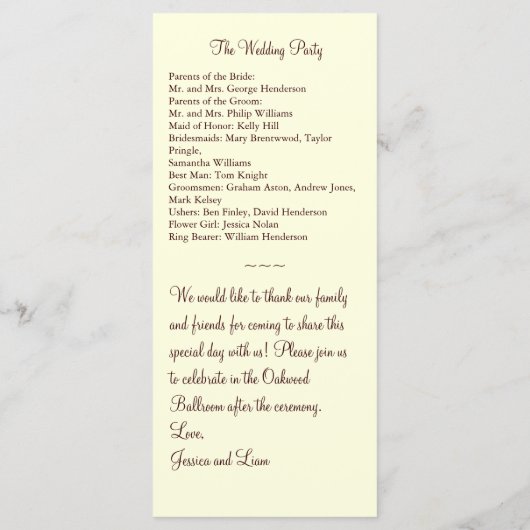 The Wedding Party
Parents of the Bride:
Mr. and Mrs. George Henderson
Parents of the Groom:
Mr. and Mrs. Philip Williams
Maid of Honor: Kelly Hill
Bridesmaids: Mary Brentwwod, Taylor
Pringle,
Samantha Williams
Best Man: Tom Knight
Groomsmen: Graham Aston, Andrew Jones,
Mark Kelsey
Ushers: Ben Finley, David Henderson
Flower Girl: Jessica Nolan
Ring Bearer: William Henderson
~~~
We would like to thank our family
and friends for coming to share this
special day with us! Please join us
to celebrate in the Oakwood
Ballroom after the ceremony.
Love,
Jessica and Liam